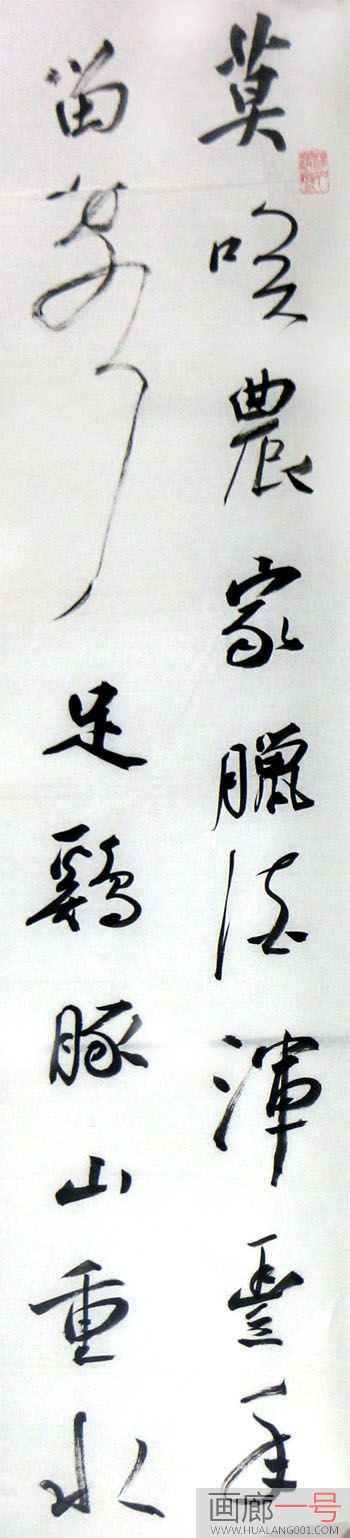 莫笑農家臘酒渾豐年
留客足鷄豚山重水
画廊一号
WWW.HUALANG001.COM